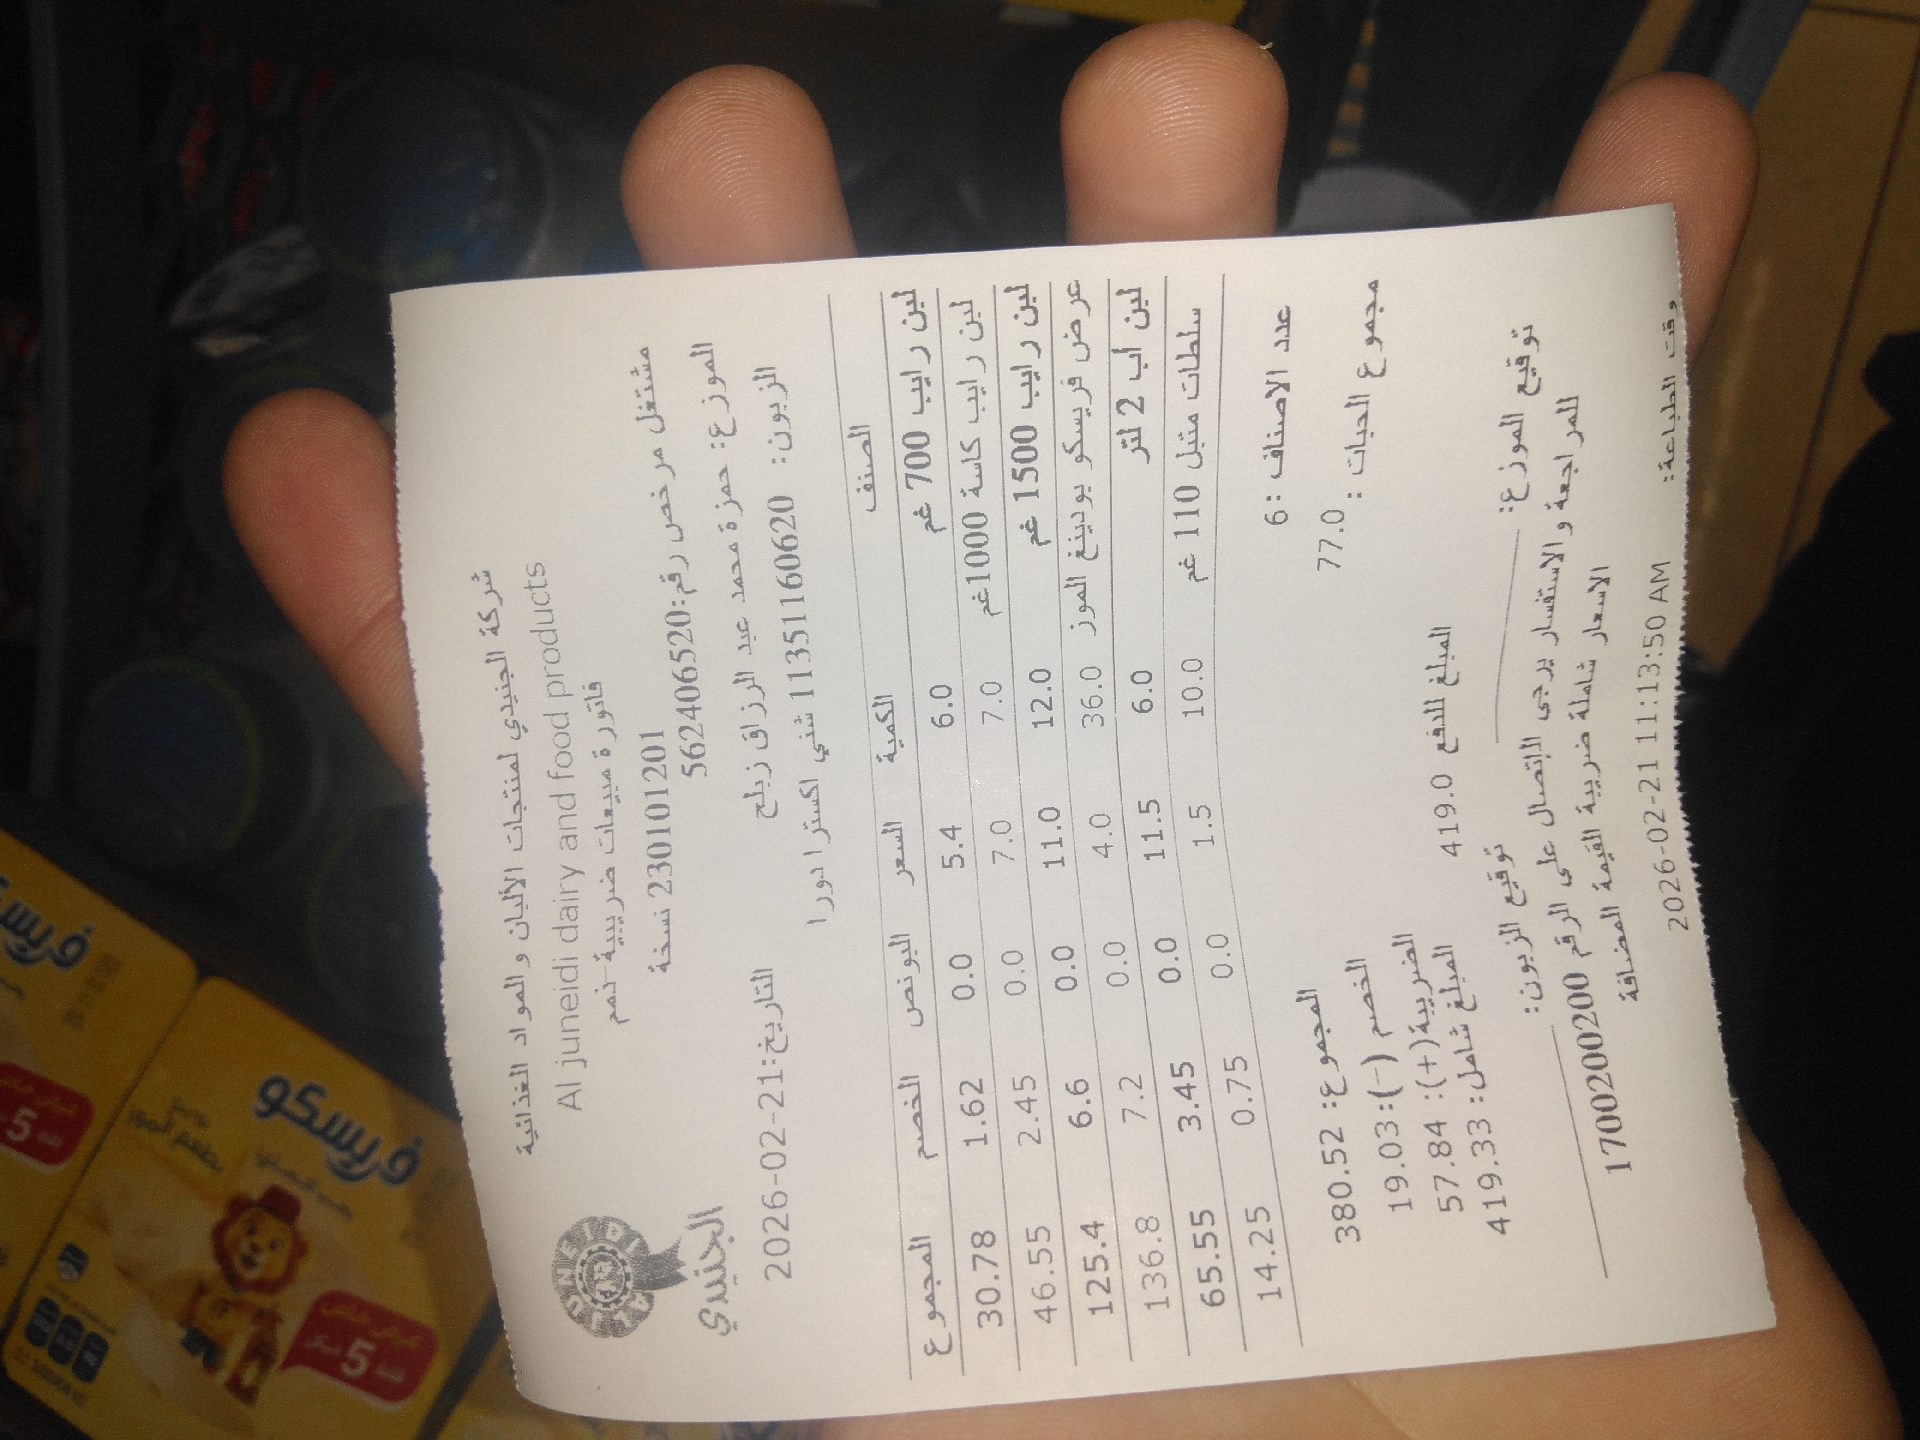 شركة الجنيدي لمنتجات الألبان والمواد الغذائية
Al juneidi dairy and food products
فاتورة مبيعات ضريبية-ذمم
230101201 نسخة
مشتغل مرخص رقم:562406520
الجنيدي
الموزع: حمزة محمد عبد الرزاق زبلح
التاريخ:21-02-2026
الزبون: 11351160620 شني اكسترا دورا
الصنف الكمية السعر البونص الخصم المجموع
لبن رايب 700 غم 6.0 5.4 0.0 1.62 30.78
لبن رايب كاسة 1000غم 7.0 7.0 0.0 2.45 46.55
لبن رايب 1500 غم 12.0 11.0 0.0 6.6 125.4
عرض فريسكو بودينغ الموز 36.0 4.0 0.0 7.2 136.8
لبن أب 2 لتر 6.0 11.5 0.0 3.45 65.55
سلطات متبل 110 غم 10.0 1.5 0.0 0.75 14.25
عدد الاصناف :6
المجموع: 380.52
مجموع الحبات : 77.0
الخصم (-): 19.03
الضريبة(+): 57.84
المبلغ للدفع 419.0
المبلغ شامل: 419.33
توقيع الموزع:
توقيع الزبون:
للمراجعة والاستفسار يرجى الإتصال على الرقم 1700200200
الاسعار شاملة ضريبة القيمة المضافة
وقت الطباعة:
2026-02-21 11:13:50 AM
فريسكو
بطعم الموز
5
فريسكو
5